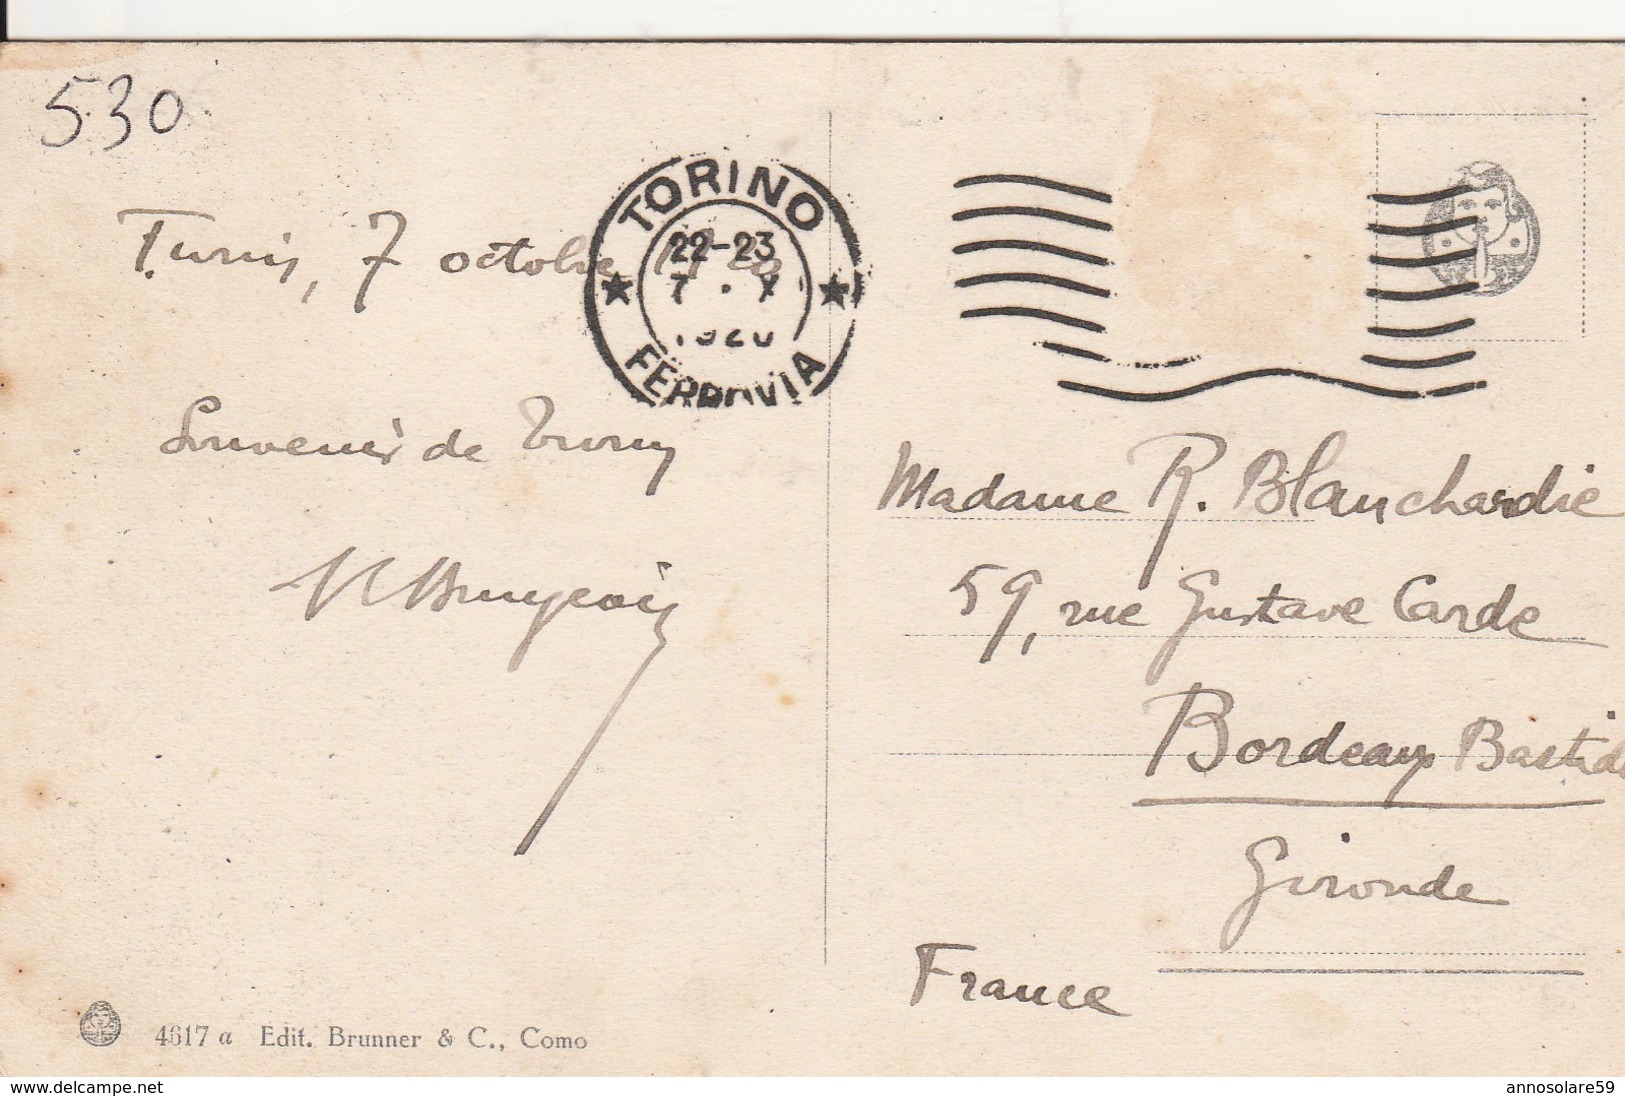 530
Turin, 7 octobre
TORINO
22-23
7 . X
1920
FERROVIA
Souvenir de Turin
Madame R. Blanchardie
59, rue Gustave Carde
Bordeaux Bastide
Gironde
France
4617 a Edit. Brunner & C., Como
www.delcampe.net
annosolare59